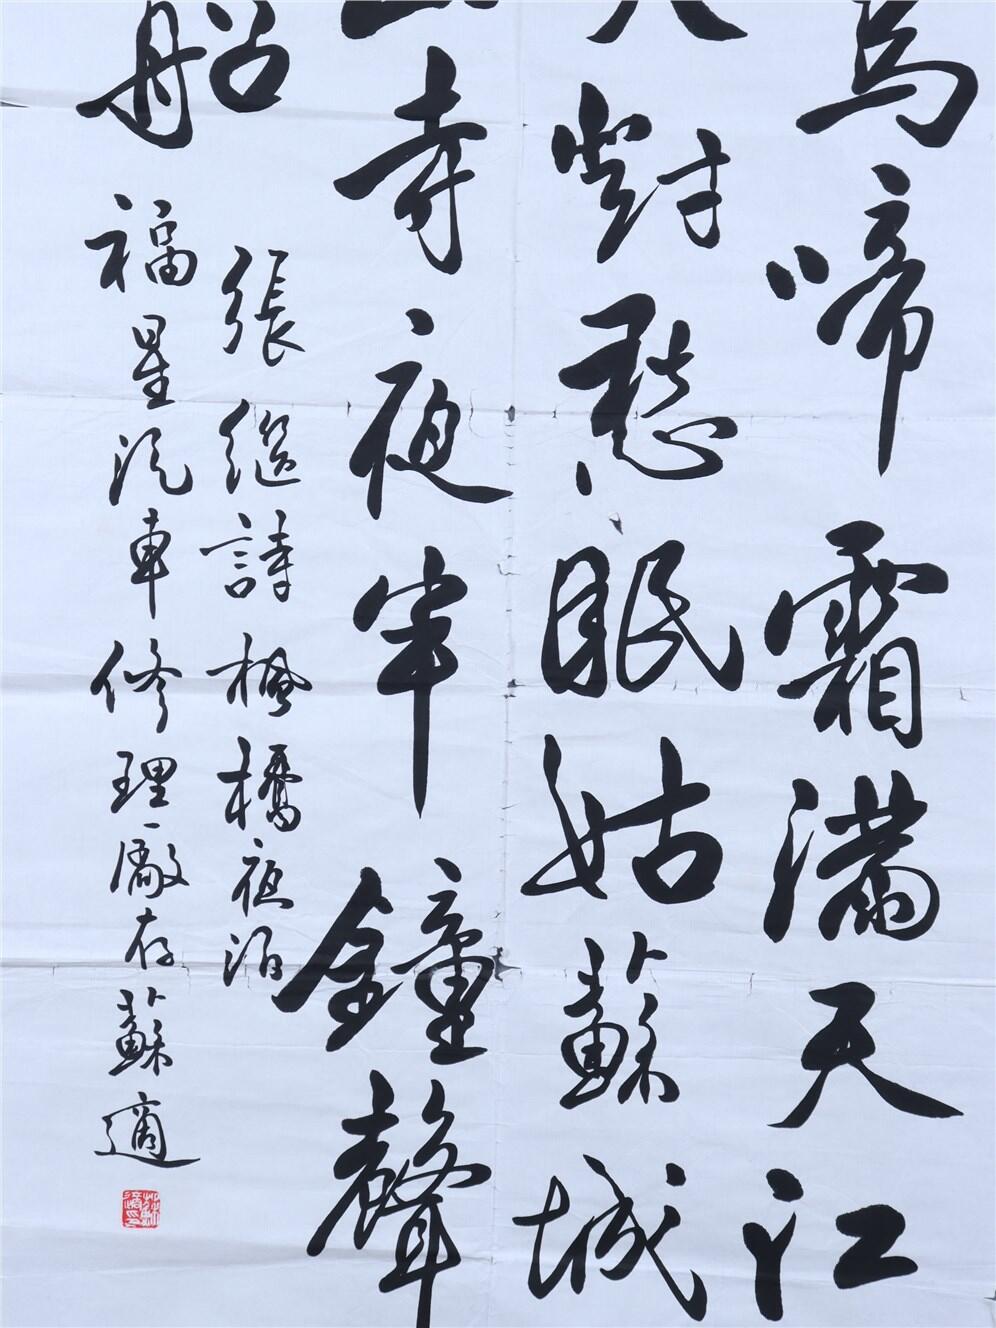 烏啼霜滿天江
火對愁眠姑蘇城
山寺夜半鐘聲
船
張繼詩楓橋夜泊
福星汽車修理廠存蘇適